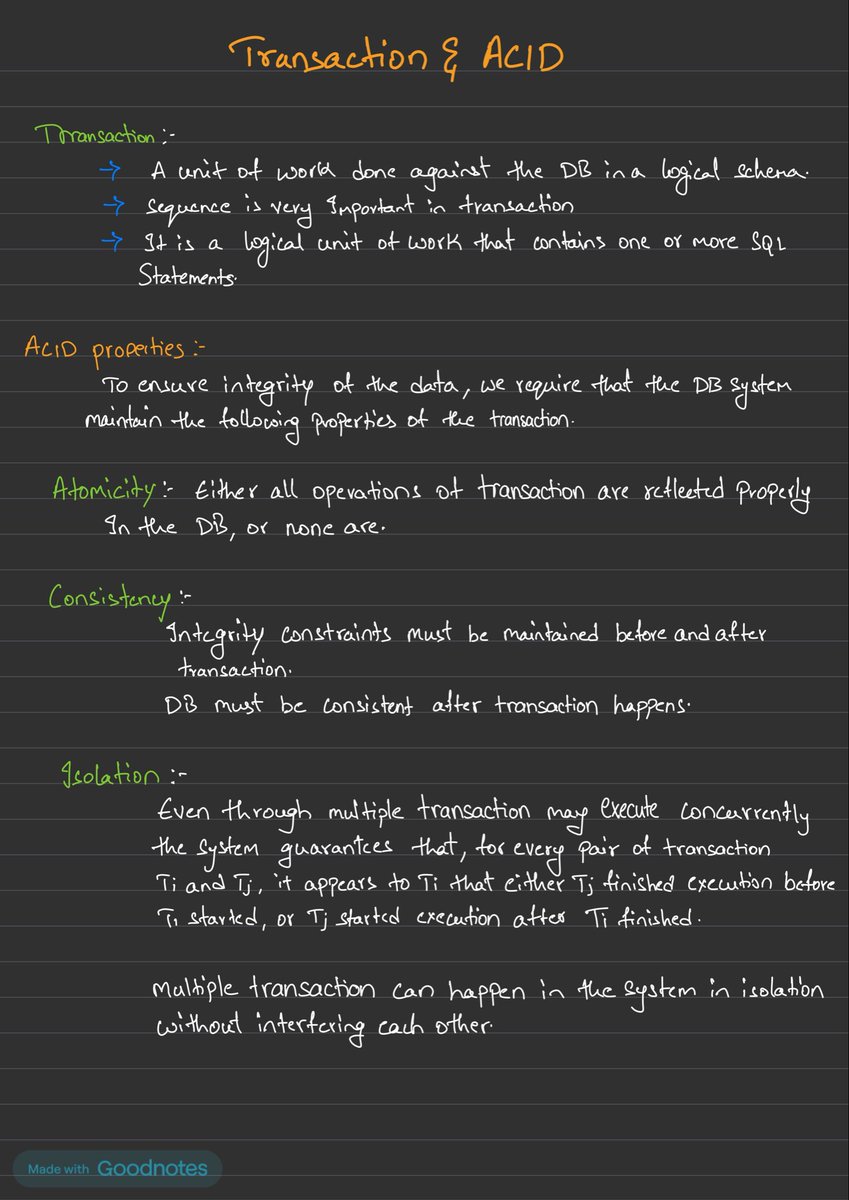 Transaction & ACID
Transaction :-
→ A unit of work done against the DB in a logical schema.
→ Sequence is very Important in transaction
→ It is a logical unit of work that contains one or more SQL
Statements.
ACID properties :-
To ensure integrity of the data, we require that the DB system
maintain the following properties of the transaction.
Atomicity :- Either all operations of transaction are reflected properly
In the DB, or none are.
Consistency :-
Integrity constraints must be maintained before and after
transaction.
DB must be consistent after transaction happens.
Isolation :-
Even through multiple transaction may execute concurrently
the system guarantees that, for every pair of transaction
Ti and Tj, it appears to Ti that either Tj finished execution before
Ti started, or Tj started execution after Ti finished.
Multiple transaction can happen in the system in isolation
without interfering each other.
Made with Goodnotes